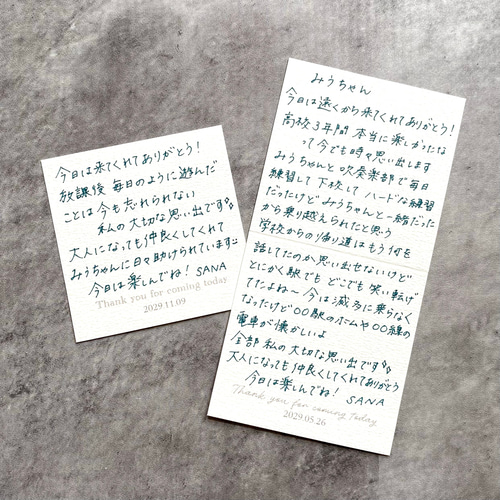 今日は来てくれてありがとう!
放課後 毎日のように遊んだ
ことは今も忘れられない
私の大切な思い出です
大人になっても仲良くしてくれて
みうちゃんに日々助けられています
今日は楽しんでね! SANA
Thank you for coming today
2029.11.09
みうちゃん
今日は遠くから来てくれてありがとう!
高校3年間 本当に楽しかったな
って今でも時々思い出します
みうちゃんと吹奏楽部で毎日
練習して下校して ハードな練習
だったけどみうちゃんと一緒だった
から乗り越えられたと思う
学校からの帰り道はもう何を
話してたのか思い出せないけど
とにかく駅でも どこでも 笑い転げ
てたよね〜 今は滅多に乗らなく
なったけど○○駅のホームや○○線の
電車が懐かしいよ
全部 私の大切な思い出です
大人になっても仲良くしてくれてありがとう
今日は楽しんでね! SANA
Thank you for coming today
2029.05.26